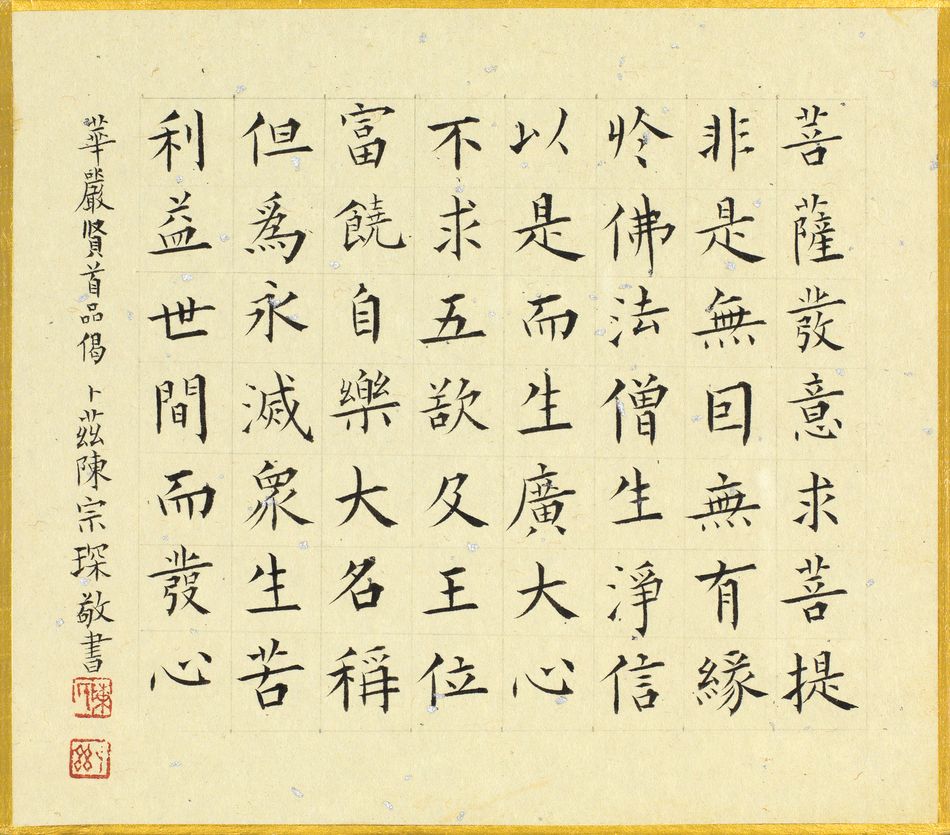 菩薩發意求菩提
非是無囙無有緣
扵佛法僧生淨信
以是而生廣大心
不求五欲及王位
富饒自樂大名稱
但爲永滅衆生苦
利益世間而發心
華嚴賢首品偈 卜茲陳宗琛敬書